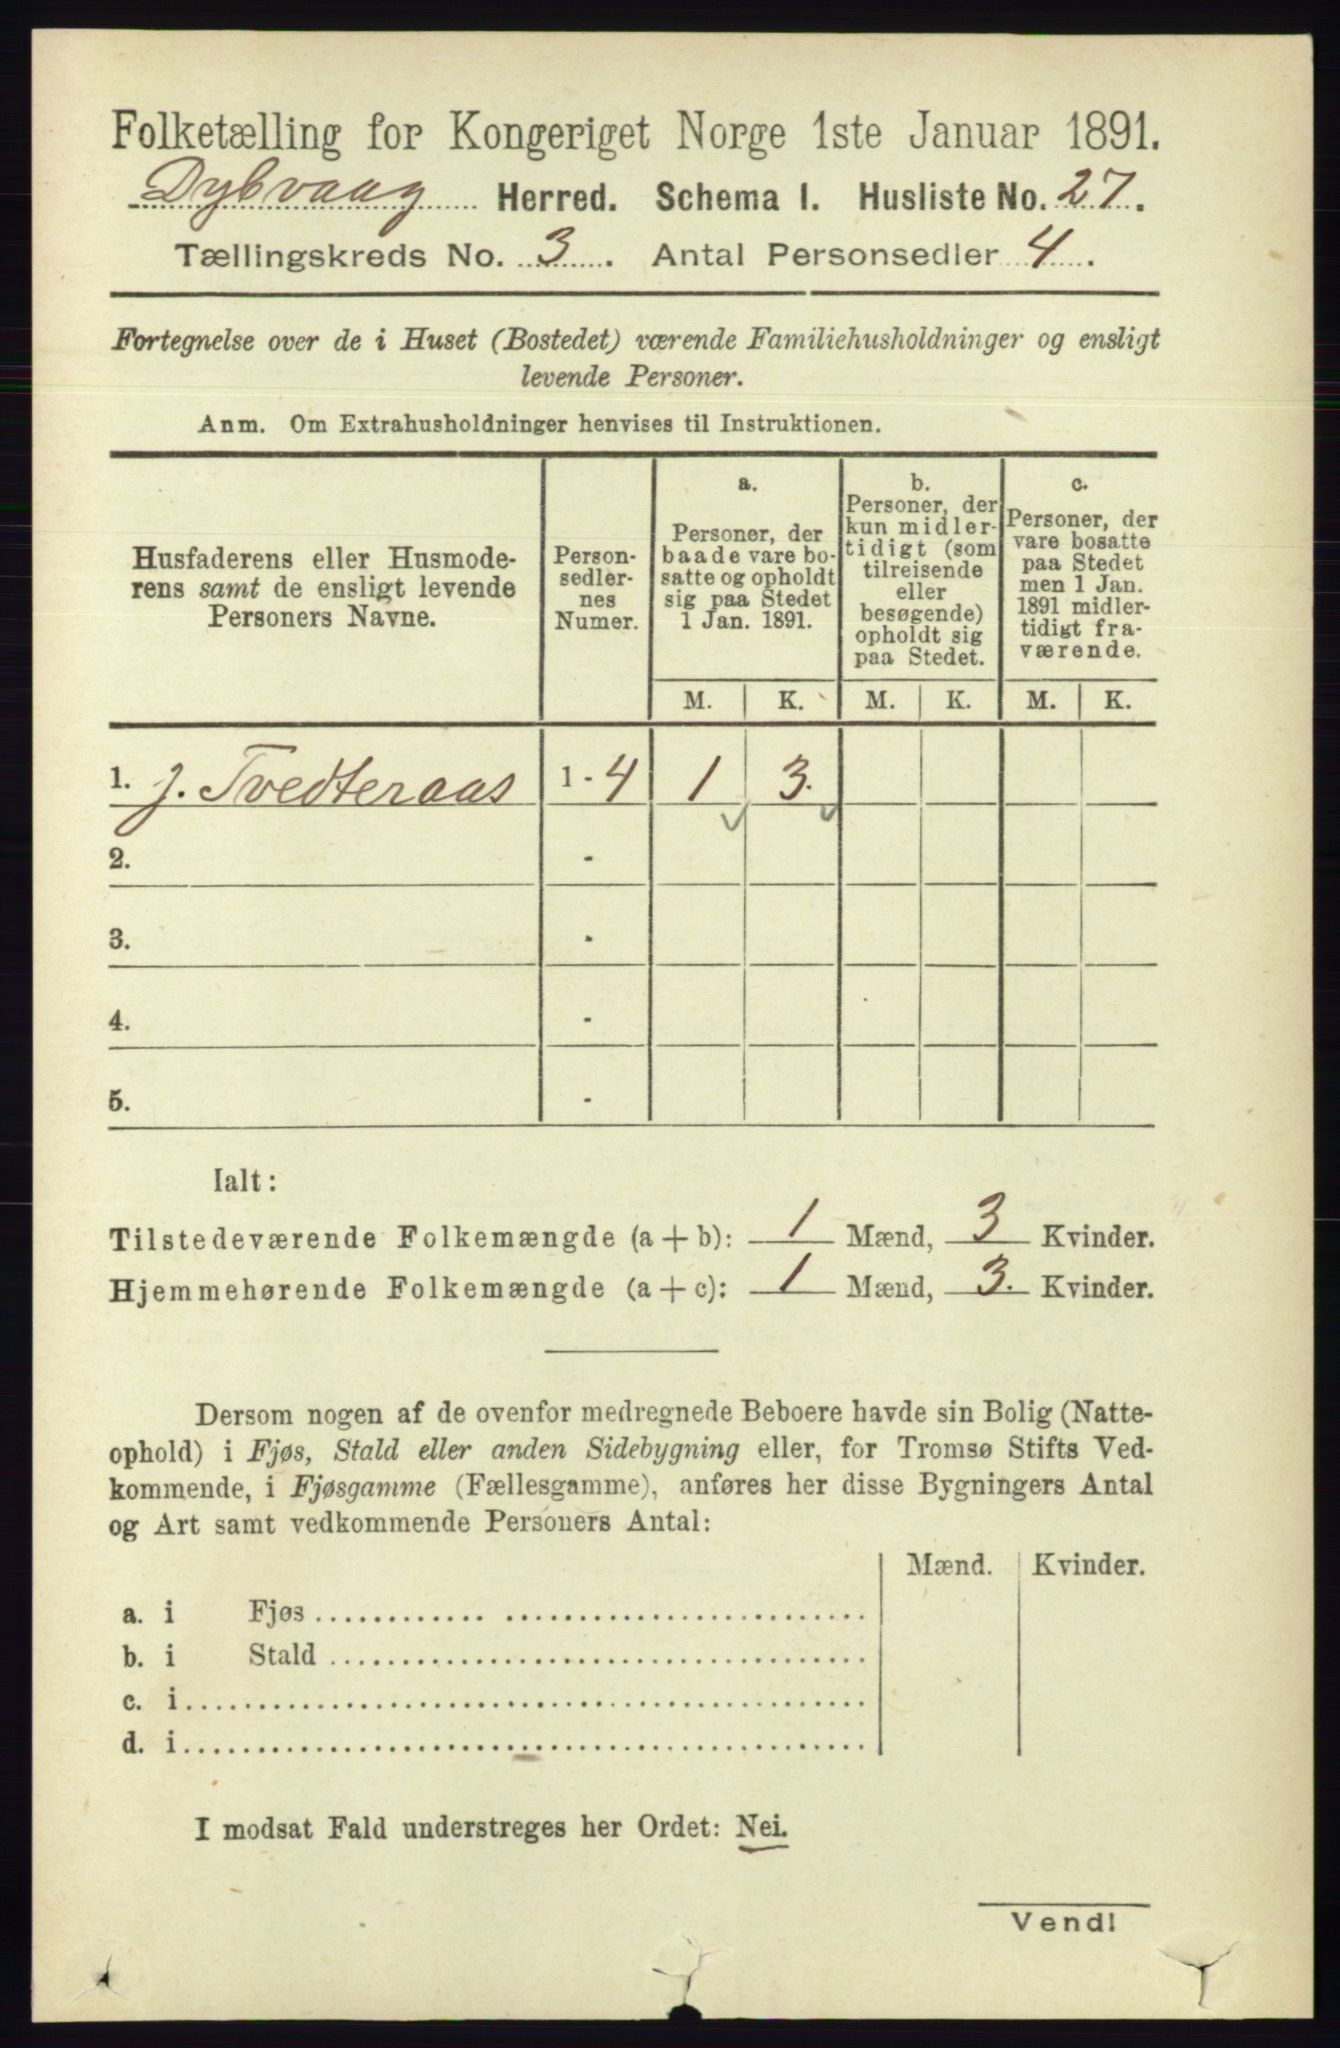 Folketælling for Kongeriget Norge 1ste Januar 1891.
Dybvaag Herred. Schema I. Husliste No. 27.
Tællingskreds No. 3. Antal Personsedler 4.
Fortegnelse over de i Huset (Bostedet) værende Familiehusholdninger og ensligt
levende Personer.
Anm. Om Extrahusholdninger henvises til Instruktionen.
Husfaderens eller Husmode-
rens samt de ensligt levende
Personers Navne.
Person-
sedler-
nes
Numer.
a.
Personer, der
baade vare bo-
satte og opholdt
sig paa Stedet
1 Jan. 1891.
b.
Personer, der
kun midler-
tidigt (som
tilreisende
eller
besøgende)
opholdt sig
paa Stedet.
c.
Personer, der
vare bosatte
paa Stedet
men 1 Jan.
1891 midler-
tidigt fra-
værende.
M. K. M. K. M. K.
1. J. Tvedteraas 1 - 4 1 3.
2. -
3. -
4. -
5. -
Ialt:
Tilstedeværende Folkemængde (a + b): 1 Mænd, 3 Kvinder.
Hjemmehørende Folkemængde (a + c): 1 Mænd, 3. Kvinder.
Dersom nogen af de ovenfor medregnede Beboere havde sin Bolig (Natte-
ophold) i Fjøs, Stald eller anden Sidebygning eller, for Tromsø Stifts Ved-
kommende, i Fjøsgamme (Fællesgamme), anføres her disse Bygningers Antal
og Art samt vedkommende Personers Antal:
Mænd. Kvinder.
a. i Fjøs
b. i Stald
c. i
d. i
I modsat Fald understreges her Ordet: Nei.
Vend!